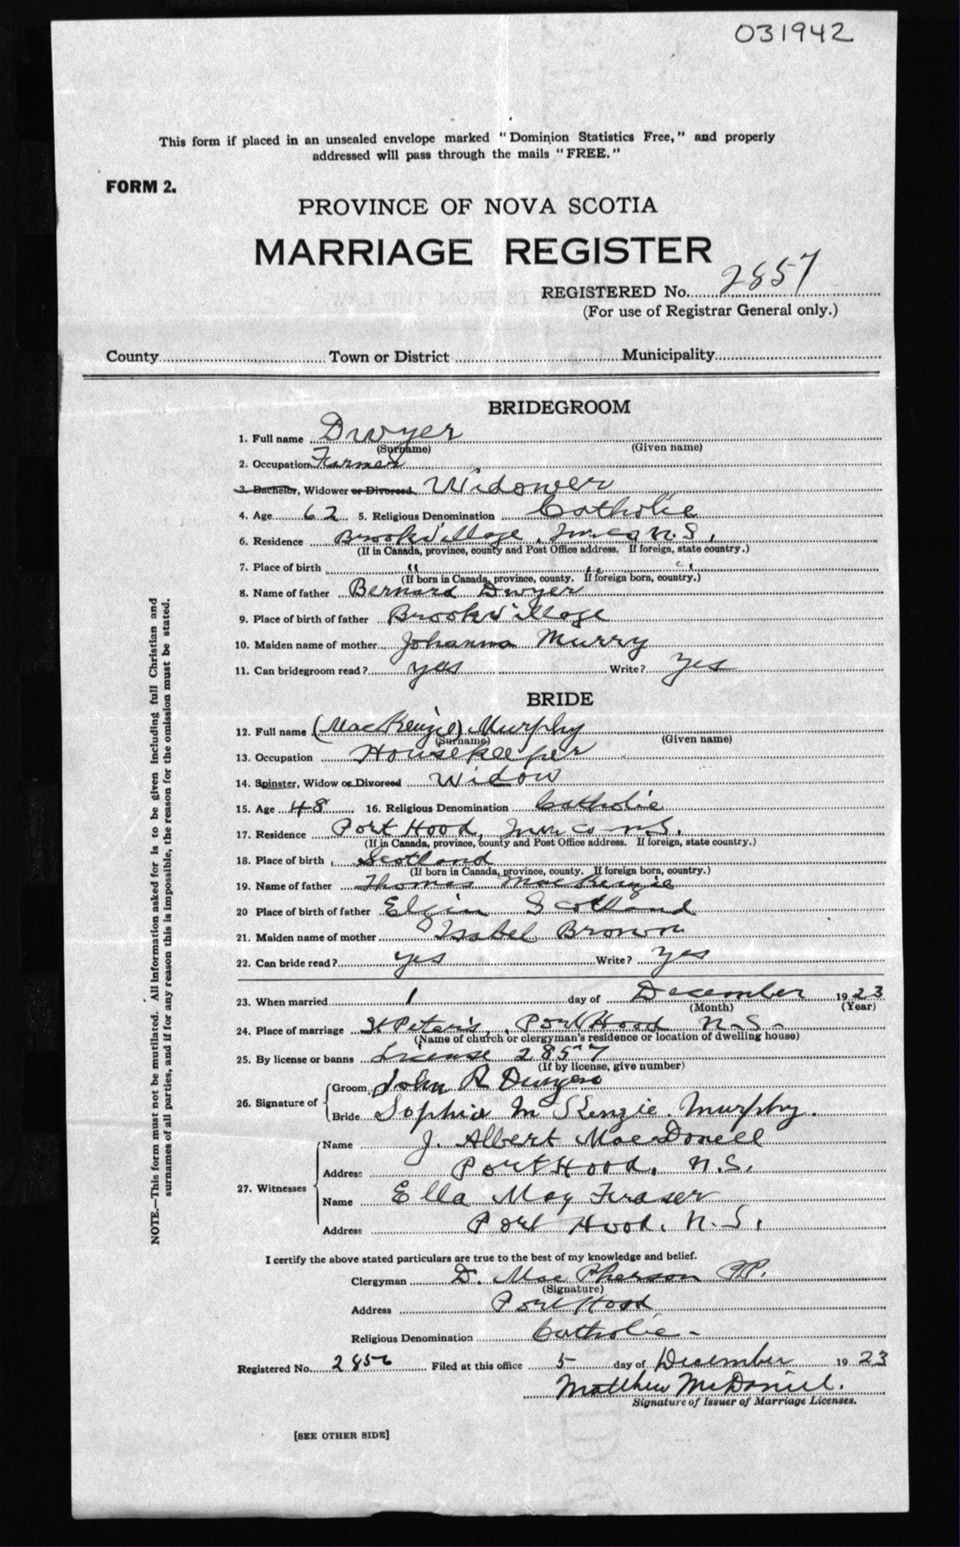 031942
This form if placed in an unsealed envelope marked "Dominion Statistics Free," and properly
addressed will pass through the mails "FREE."
FORM 2.
PROVINCE OF NOVA SCOTIA
MARRIAGE REGISTER
REGISTERED No. 2857
(For use of Registrar General only.)
County Town or District Municipality
BRIDEGROOM
1. Full name Dwyer
(Surname) (Given name)
2. Occupation Farmer
3. Bachelor, Widower or Divorced Widower
4. Age 62 5. Religious Denomination Catholic
6. Residence Brook Village, Inv. Co N.S.
(If in Canada, province, county and Post Office address. If foreign, state country.)
7. Place of birth " "
(If born in Canada, province, county. If foreign born, country.)
8. Name of father Bernard Dwyer
9. Place of birth of father Brook Village
10. Maiden name of mother Johanna Murry
11. Can bridegroom read? yes Write? yes
BRIDE
12. Full name (MacKenzie) Murphy
(Surname) (Given name)
13. Occupation Housekeeper
14. Spinster, Widow or Divorced Widow
15. Age 48 16. Religious Denomination Catholic
17. Residence Port Hood, Inv. Co N.S.
(If in Canada, province, county and Post Office address. If foreign, state country.)
18. Place of birth Scotland
(If born in Canada, province, county. If foreign born, country.)
19. Name of father Thomas MacKenzie
20 Place of birth of father Elgin Scotland
21. Maiden name of mother Isabel Brown
22. Can bride read? yes Write? yes
23. When married 1 day of December 1923
(Month) (Year)
24. Place of marriage St Peter's, Port Hood N.S.
(Name of church or clergyman's residence or location of dwelling house)
25. By license or banns License 2857
(If by license, give number)
26. Signature of Groom John R Dwyer
Bride Sophia McKenzie Murphy.
27. Witnesses Name J. Albert MacDonell
Address Port Hood, N.S.
Name Ella May Fraser
Address Port Hood, N.S.
I certify the above stated particulars are true to the best of my knowledge and belief.
Clergyman D. MacPherson P.P.
(Signature)
Address Port Hood
Religious Denomination Catholic
Registered No. 2856 Filed at this office 5 day of December 1923
Matthew McDaniel.
Signature of Issuer of Marriage Licenses.
[SEE OTHER SIDE]
NOTE.—This form must not be mutilated. All information asked for is to be given including full Christian and
surnames of all parties, and if for any reason this is impossible, the reason for the omission must be stated.